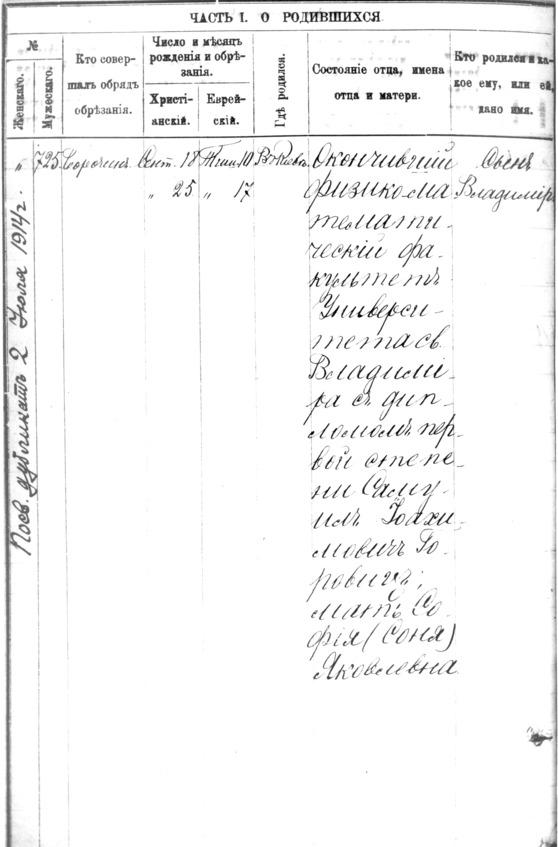 ЧАСТЬ I. О РОДИВШИХСЯ.
№
Женскаго.
Мужескаго.
Кто совер-
шалъ обрядъ
обрѣзанія.
Число и мѣсяцъ
рожденія и обрѣ-
занія.
Христі-
анскій.
Еврей-
скій.
Гдѣ родился.
Состояніе отца, имена
отца и матери.
Кто родился и ка-
кое ему, или ей,
дано имя.
" 725 Сорочкинъ Сент. 18 Тиш. 10 Окончившій Сынъ
" 25 " 17 физико-ма Владиміръ
темати-
ческій фа-
культетъ
Универси-
тета св.
Владимі-
ра съ дип-
ломомъ пер-
вой степе-
ни Саму-
илъ Іоахи-
мовичъ Го-
ровичъ;
мать Со-
фія (Соня)
Яковлевна
дубликатъ 2 Іюла 1914 г.